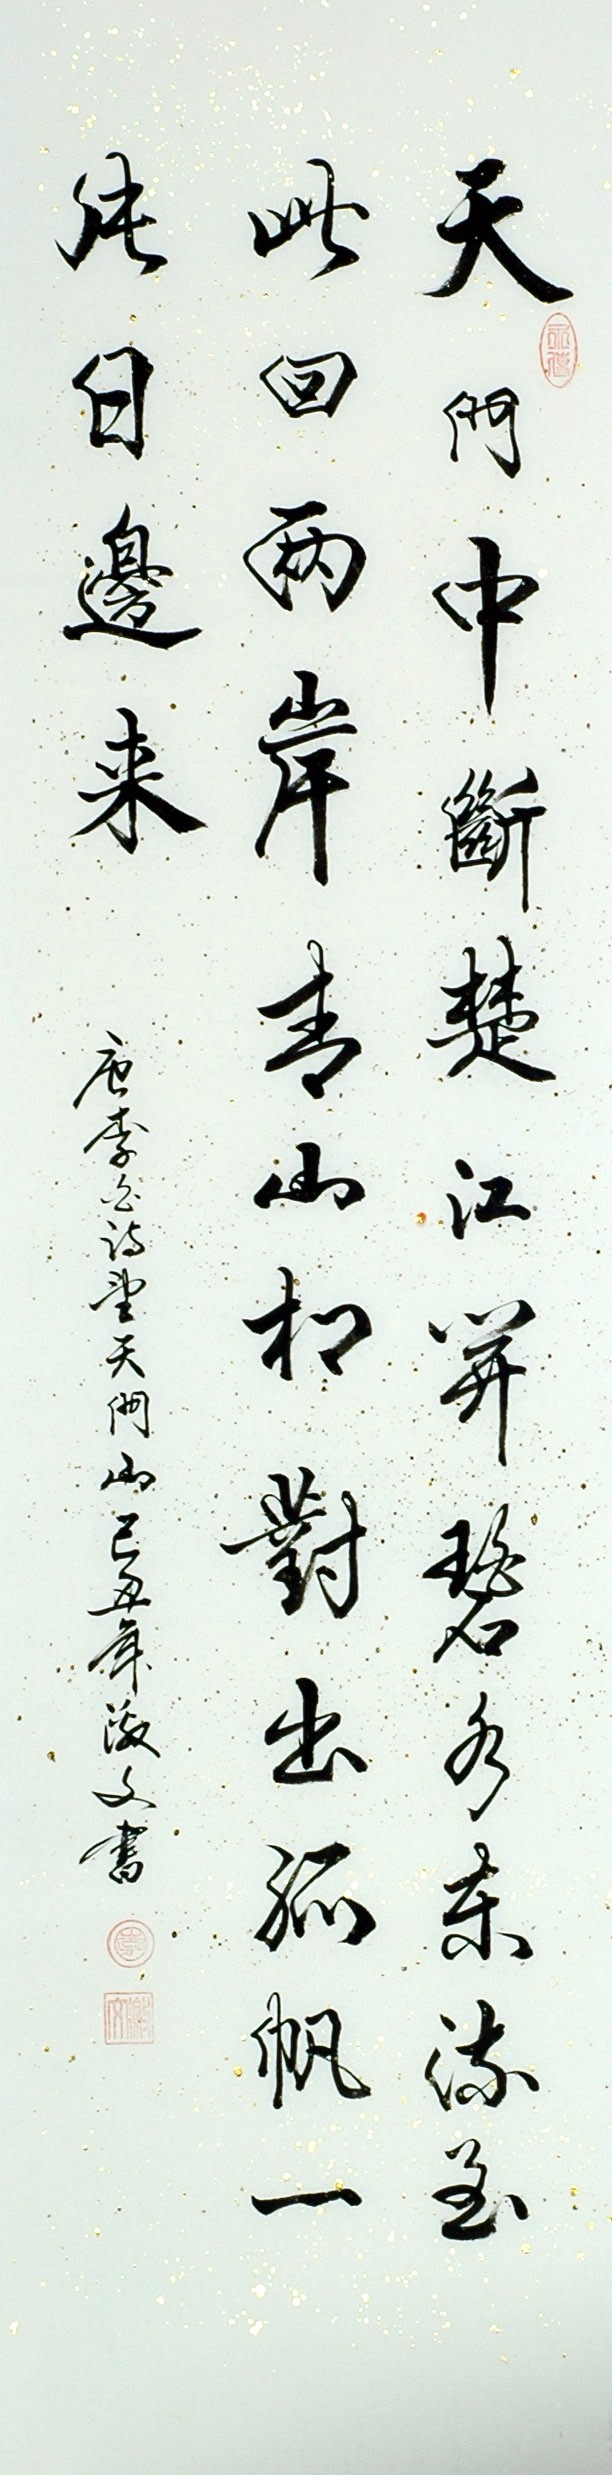 天門中斷楚江開碧水東流至
此回两岸青山相對出孤帆一
片日邊来
唐李白詩望天門山己丑年文書